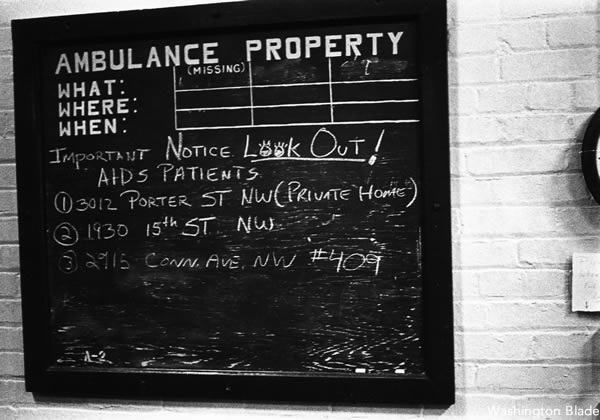 AMBULANCE PROPERTY
(MISSING)
WHAT:
WHERE:
WHEN:
IMPORTANT NOTICE LOOK OUT!
AIDS PATIENTS
① 3012 PORTER ST NW (PRIVATE HOME)
② 1930 15th ST NW
③ 2915 CONN. AVE. NW #409
A-2
Washington Blade